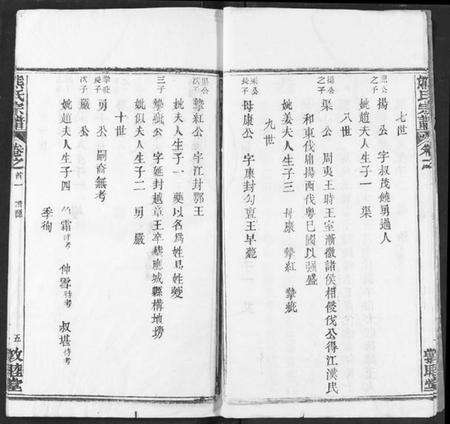 七世
楊公 字叔茂饒勇過人
妣趙夫人生子一 渠
八世
楊公之子
渠公 周夷王時王室漸微諸侯相侵伐公得江漢民
和東伐庸揚西伐粵巴國以强盛
妣姜夫人生子三 母康 摯紅 摯疵
九世
渠公長子
母康公 字康封句亶王早薨
渠公次子
摯紅公 字江封鄂王
妣夫人生子一 藥以名爲姓見姓夔
三子
摯疵公 字延封越章王卒葬應城縣橫埔塝
妣姒夫人生子二 勇 嚴
十世
摯疵長子
勇公 嗣裔無考
次子
嚴公
妣趙夫人生子四 伯霜待考 仲雪待考 叔堪待考
季徇
熊氏宗譜
卷之首一
五
敦睦堂
熊氏宗譜